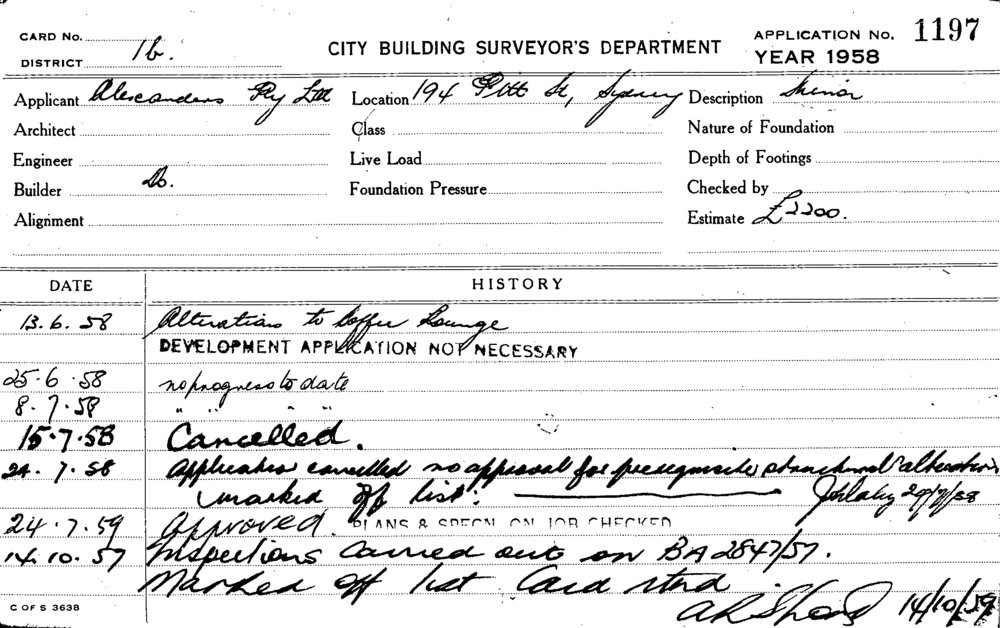 CARD No.
DISTRICT 1b.
CITY BUILDING SURVEYOR'S DEPARTMENT
APPLICATION No. 1197
YEAR 1958
Applicant Alexanders Pty Ltd Location 194 Pitt St, Sydney Description Minor
Architect Class Nature of Foundation
Engineer Live Load Depth of Footings
Builder Do. Foundation Pressure Checked by
Alignment Estimate £2200.
DATE HISTORY
13.6.58 Alterations to Coffee Lounge
DEVELOPMENT APPLICATION NOT NECESSARY
25.6.58 no progress to date
8.7.58 " " " "
15.7.58 Cancelled.
24.7.58 Application cancelled no approval for prerequisite structural alterations
(marked off list. 29/7/58
24.7.59 Approved. PLANS & SPECN. ON JOB CHECKED
14.10.57 Inspections Carried out on BA 2847/57.
Marked off list Card
14/10/59
C OF S 3638